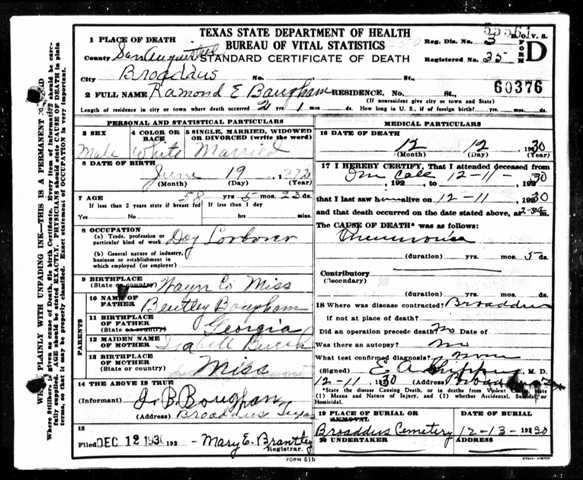 TEXAS STATE DEPARTMENT OF HEALTH
BUREAU OF VITAL STATISTICS
STANDARD CERTIFICATE OF DEATH
Reg. Dis. 3
Registered No. 35
FORM D
1 PLACE OF DEATH
County San Augustine
City Broaddus No.
60376
2 FULL NAME Ramond E Baugham RESIDENCE, No.
(If nonresident give city or town and State)
Length of residence in city or town where death occurred 21 yrs. 1 mos. ds. How long in U. S., if of foreign birth? yrs. mos. ds.
PERSONAL AND STATISTICAL PARTICULARS
3 SEX Male
4 COLOR OR RACE White
5 SINGLE, MARRIED, WIDOWED OR DIVORCED (write the word) Married
6 DATE OF BIRTH
June 19 1872
(Month) (Day) (Year)
7 AGE 58 yrs. 5 mos. 23 ds.
If less than 2 years state if breast fed If less than 1 day
Yes No hrs. min.
8 OCCUPATION
(a) Trade, profession or particular kind of work Day
(b) General nature of industry, business or establishment in which employed (or employer)
9 BIRTHPLACE
(State or country) Wayn Co Miss
10 NAME OF FATHER Bentley Baugham
PARENTS
11 BIRTHPLACE OF FATHER
(State or country) Georgia
12 MAIDEN NAME OF MOTHER
13 BIRTHPLACE OF MOTHER
(State or country) Miss
14 THE ABOVE IS TRUE
(Informant) J. B. Boughan
(Address) Broaddus Texas
15
Filed DEC 12 1930 192 Mary E. Brantley
Registrar.
MEDICAL PARTICULARS
16 DATE OF DEATH
12 12 1930
(Month) (Day) (Year)
17 I HEREBY CERTIFY, That I attended deceased from
One Call 12-11- 30
that I last saw him alive on 12-11 1930
and that death occurred on the date stated above, at
The CAUSE OF DEATH* was as follows:
Pneumonia
(duration) yrs. mos. 5 ds.
Contributory
(Secondary)
(duration) yrs. mos. ds.
18 Where was disease contracted? Broaddus
if not at place of death?
Did an operation precede death? No Date of
Was there an autopsy? No
What test confirmed diagnosis?
(Signed) M. D.
12-11-30 (Address) Broaddus
* State the disease Causing Death, or in deaths from Violent Causes, state (1) Means and Nature of Injury, and (2) whether Accidental, Suicidal, or Homicidal.
19 PLACE OF BURIAL OR REMOVAL
Broaddus Cemetery
DATE OF BURIAL
12-13-1930
20 UNDERTAKER
ADDRESS